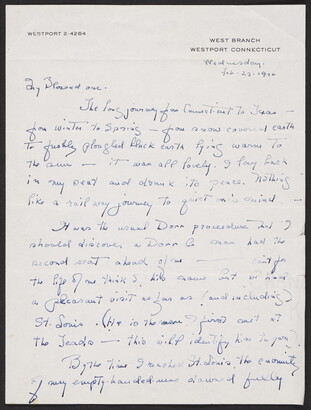 WESTPORT 2-4264
WEST BRANCH
WESTPORT CONNECTICUT
Wednesday.
Feb-23-19
My Blessed one.
The long journey from Connecticut to Texas —
from winter to Spring — from snow covered earth
to freshly ploughed black earth lying warm to
the sun — it was all lovely. I lay back
in my seat and drank its peace. Nothing
like a railway journey to quiet one's mind —
It was the usual Dorr procedure that I
should discover a Dorr Co. man had the
second seat ahead of me — can't for
the life of me think of his name but we had
a pleasant visit as far as (and including)
St. Louis. (He is the man I first met at
the Teads — this will identify him to you)
By the time I reached St. Louis the enormity
of my empty-handedness dawned fully